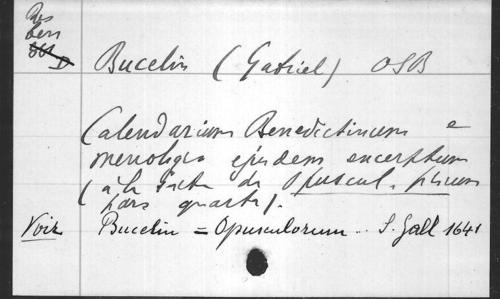 D
Bucelin (Gabriel) OSB
Calendarium Benedictinum e
menologio ejusdem excerptum
(à la suite de Opuscul. piorum
pars quarta).
Voir Bucelin = Opusculorum .. S. Gall 1641